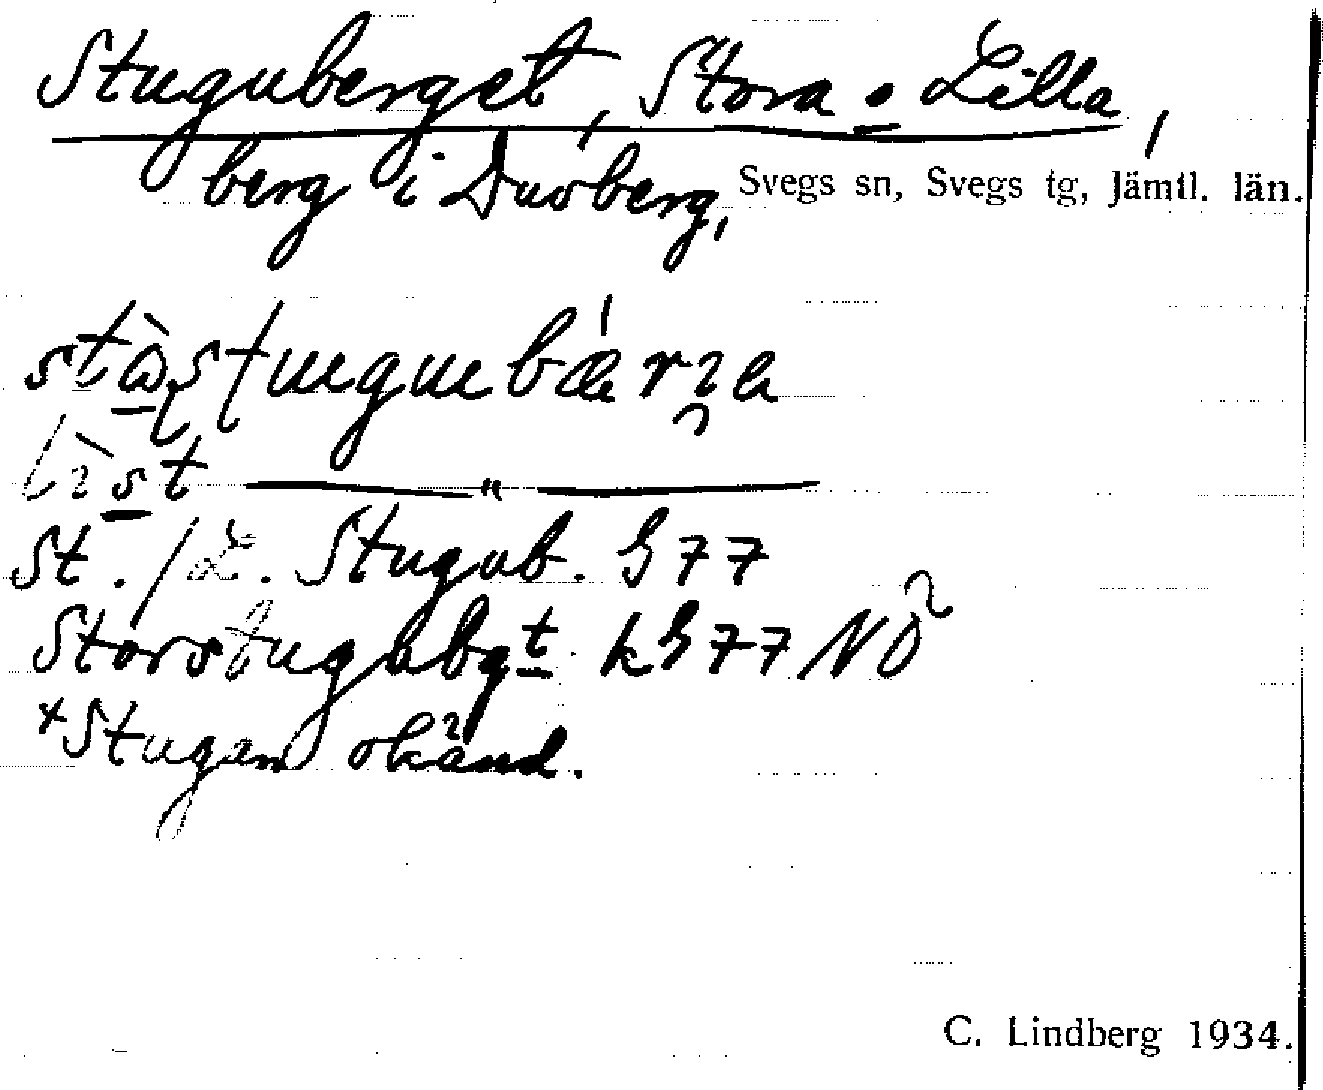 Stuguberget, Stora o Lilla,
berg i Duvberg, Svegs sn, Svegs tg, Jämtl. län.
St. / L. Stugub. G 77
Storstugubgt k G 77 NÖ
*Stugan okänd.
C. Lindberg 1934.